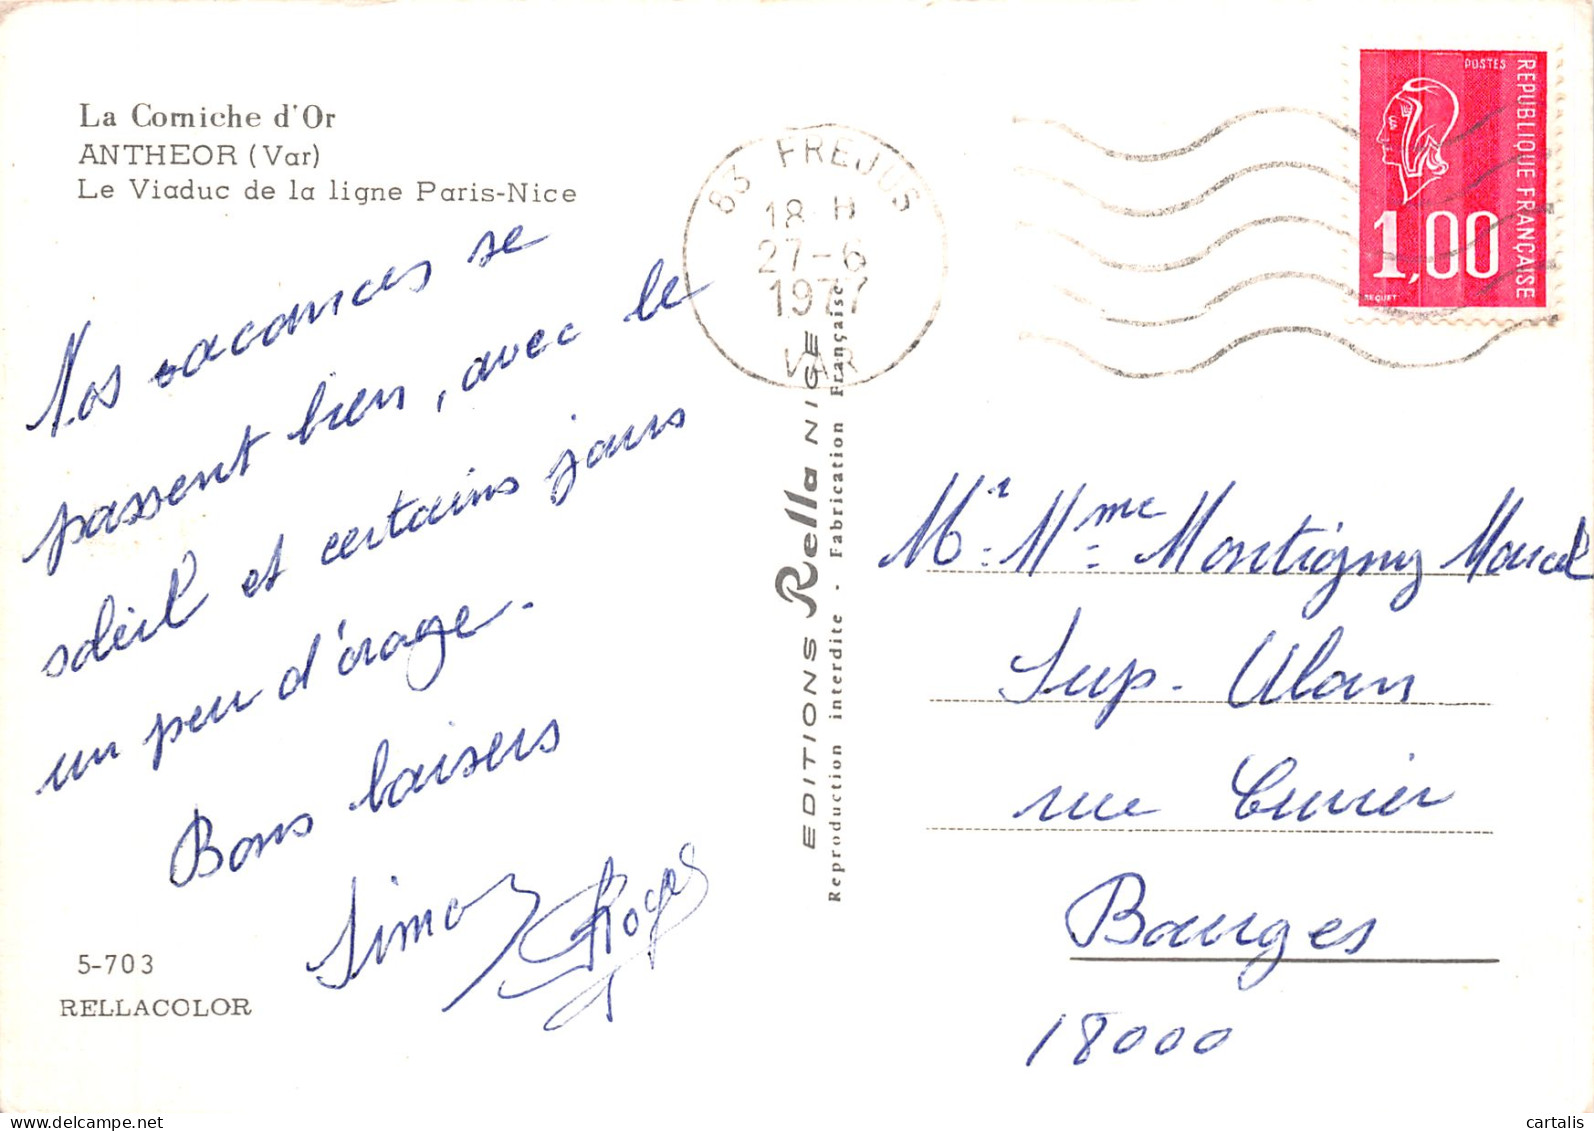 La Corniche d'Or
ANTHEOR (Var)
Le Viaduc de la ligne Paris-Nice
Nos vacances se
passent bien, avec le
soleil et certains jours
un peu d'orage.
Bons baisers
Simon Roger
5-703
RELLACOLOR
EDITIONS Rella NICE
Reproduction interdite - Fabrication Française
83 FREJUS
18 H
27-6
1977
VAR
POSTES
REPUBLIQUE FRANÇAISE
1,00
BEQUET
Mr. Mme Montigny Marcel
rue Cuvier
Bourges
18000
cartalis - www.delcampe.net